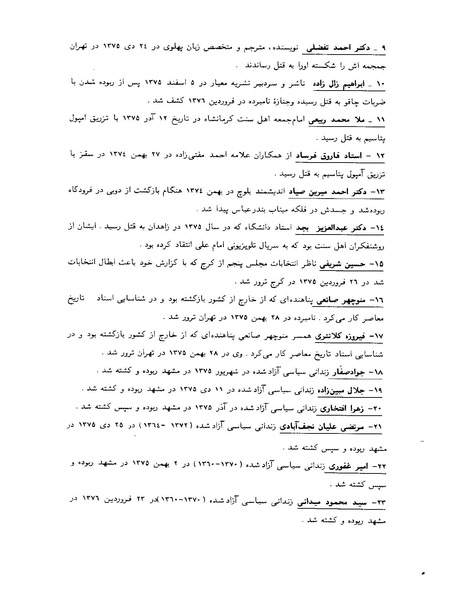 ۹ _ دکتر احمد تفضلی نویسنده، مترجم و متخصص زبان پهلوی در ۲۴ دی ۱۳۷۵ در تهران
جمجمه اش را شکسته اورا به قتل رساندند .
۱۰ _ ابراهیم زال زاده ناشر و سردبیر نشریه معیار در ۵ اسفند ۱۳۷۵ پس از ربوده شدن با
ضربات چاقو به قتل رسیده وجنازهٔ نامبرده در فروردین ۱۳۷۶ کشف شد .
۱۱ _ ملا محمد ربیعی امام‌جمعه اهل سنت کرمانشاه در تاریخ ۱۲ آذر ۱۳۷۵ با تزریق امپول
پتاسیم به قتل رسید .
۱۲ - استاد فاروق فرساد از همکاران علامه احمد مفتی‌زاده در ۲۷ بهمن ۱۳۷۴ در سقز با
تزریق آمپول پتاسیم به قتل رسید .
۱۳- دکتر احمد میرین صیاد اندیشمند بلوچ در بهمن ۱۳۷۴ هنگام بازگشت از دوبی در فرودگاه
ربوده‌شد و جسدش در فلکه میناب بندرعباس پیدا شد .
۱۴- دکتر عبدالعزیز بجد استاد دانشگاه که در سال ۱۳۷۵ در زاهدان به قتل رسید . ایشان از
روشنفکران اهل سنت بود که به سریال تلویزیونی امام علی انتقاد کرده بود .
۱۵- حسین شریفی ناظر انتخابات مجلس پنجم از کرج که با گزارش خود باعث ابطال انتخابات
شد در ۲۶ فروردین ۱۳۷۵ در کرج ترور شد .
۱۶- منوچهر صانعی پناهنده‌ای که از خارج از کشور بازگشته بود و در شناسایی اسناد تاریخ
معاصر کار می‌کرد . نامبرده در ۲۸ بهمن ۱۳۷۵ در تهران ترور شد .
۱۷- فیروزه کلانتری همسر منوچهر صانعی پناهنده‌ای که از خارج از کشور بازگشته بود و در
شناسایی اسناد تاریخ معاصر کار می‌کرد . وی در ۲۸ بهمن ۱۳۷۵ در تهران ترور شد .
۱۸- جوادصفّار زندانی سیاسی آزادشده در شهریور ۱۳۷۵ در مشهد ربوده و کشته شد .
۱۹- جلال مبین‌زاده زندانی سیاسی آزادشده در ۱۱ دی ۱۳۷۵ در مشهد ربوده و کشته شد .
۲۰- زهرا افتخاری زندانی سیاسی آزادشده در آذر ۱۳۷۵ در مشهد ربوده و سپس کشته شد .
۲۱- مرتضی علیان نجف‌آبادی زندانی سیاسی آزادشده (۱۳۷۲ -۱۳۶۴) در ۲۵ دی ۱۳۷۵ در
مشهد ربوده و سپس کشته شد .
۲۲- امیر غفوری زندانی سیاسی آزادشده (۱۳۷۰-۱۳۶۰) در ۲ بهمن ۱۳۷۵ در مشهد ربوده و
سپس کشته شد .
۲۳- سید محمود میدانی زندانی سیاسی آزادشده (۱۳۷۰-۱۳۶۰)در ۲۳ فروردین ۱۳۷۶ در
مشهد ربوده و کشته شد .